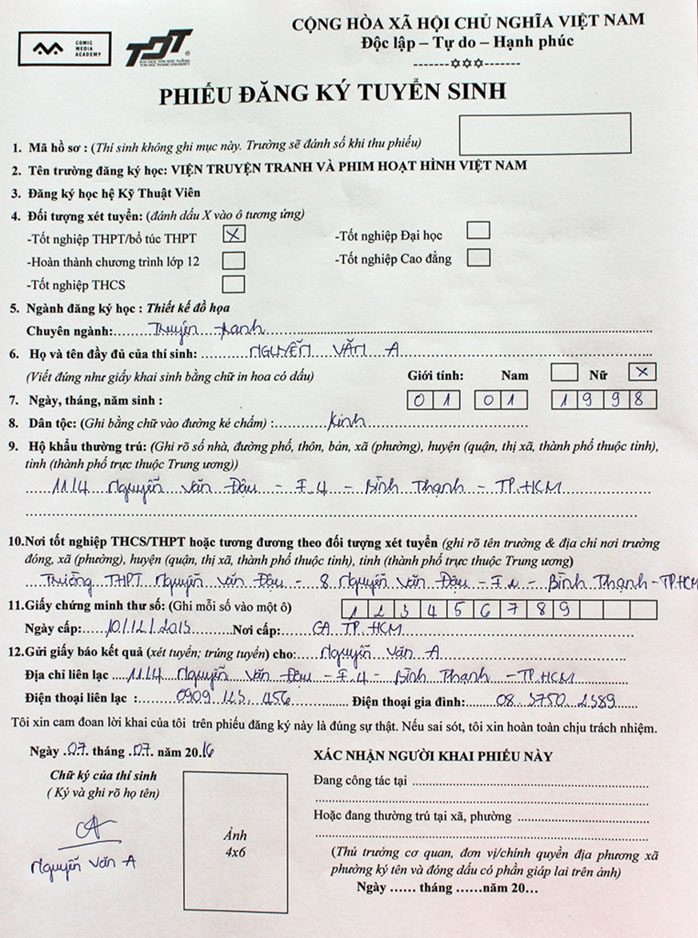 COMIC MEDIA ACADEMY
TDT
®
ĐẠI HỌC TÔN ĐỨC THẮNG
TON DUC THANG UNIVERSITY
CỘNG HÒA XÃ HỘI CHỦ NGHĨA VIỆT NAM
Độc lập – Tự do – Hạnh phúc
-------✡✡✡-------
PHIẾU ĐĂNG KÝ TUYỂN SINH
1. Mã hồ sơ : (Thí sinh không ghi mục này. Trường sẽ đánh số khi thu phiếu)
2. Tên trường đăng ký học: VIỆN TRUYỆN TRANH VÀ PHIM HOẠT HÌNH VIỆT NAM
3. Đăng ký học hệ Kỹ Thuật Viên
4. Đối tượng xét tuyển: (đánh dấu X vào ô tương ứng)
-Tốt nghiệp THPT/bổ túc THPT X -Tốt nghiệp Đại học
-Hoàn thành chương trình lớp 12 -Tốt nghiệp Cao đẳng
-Tốt nghiệp THCS
5. Ngành đăng ký học : Thiết kế đồ họa
Chuyên ngành: Truyện tranh
6. Họ và tên đầy đủ của thí sinh: NGUYỄN VĂN A
(Viết đúng như giấy khai sinh bằng chữ in hoa có dấu) Giới tính: Nam Nữ X
7. Ngày, tháng, năm sinh : 01 01 1998
8. Dân tộc: (Ghi bằng chữ vào đường kẻ chấm) : Kinh
9. Hộ khẩu thường trú: (Ghi rõ số nhà, đường phố, thôn, bản, xã (phường), huyện (quận, thị xã, thành phố thuộc tỉnh),
tỉnh (thành phố trực thuộc Trung ương))
11/4 Nguyễn Văn Đậu - F.4 - Bình Thạnh - TP.HCM
10.Nơi tốt nghiệp THCS/THPT hoặc tương đương theo đối tượng xét tuyển (ghi rõ tên trường & địa chỉ nơi trường
đóng, xã (phường), huyện (quận, thị xã, thành phố thuộc tỉnh), tỉnh (thành phố trực thuộc Trung ương)
Trường THPT Nguyễn Văn Đậu - 8 Nguyễn Văn Đậu - - Bình Thạnh - TP.HCM
11.Giấy chứng minh thư số: (Ghi mỗi số vào một ô) 123456789
Ngày cấp: 10/12/2013 Nơi cấp: CA TP.HCM
12.Gửi giấy báo kết quả (xét tuyển; trúng tuyển) cho: Nguyễn Văn A
Địa chỉ liên lạc 11/4 Nguyễn Văn Đậu - F.4 - Bình Thạnh - TP.HCM
Điện thoại liên lạc : 0909 123 456 Điện thoại gia đình: 08 3750 2389
Tôi xin cam đoan lời khai của tôi trên phiếu đăng ký này là đúng sự thật. Nếu sai sót, tôi xin hoàn toàn chịu trách nhiệm.
Ngày 07 tháng 07 năm 2016
Chữ ký của thí sinh
( Ký và ghi rõ họ tên)
A
Nguyễn Văn A
Ảnh
4x6
XÁC NHẬN NGƯỜI KHAI PHIẾU NÀY
Đang công tác tại
Hoặc đang thường trú tại xã, phường
(Thủ trưởng cơ quan, đơn vị/chính quyền địa phương xã
phường ký tên và đóng dấu có phần giáp lai trên ảnh)
Ngày …… tháng ……năm 20…